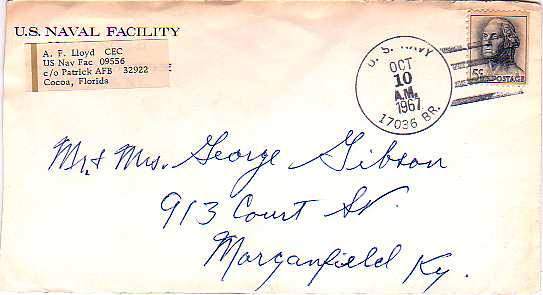 U.S. NAVAL FACILITY
A. F. Lloyd CEC
US Nav Fac 09556
c/o Patrick AFB 32922
Cocoa, Florida
U. S. NAVY
OCT
10
A.M.
1967
17036 BR.
5¢ POSTAGE
Mr & Mrs. George Gibson
913 Court St.
Morganfield Ky.